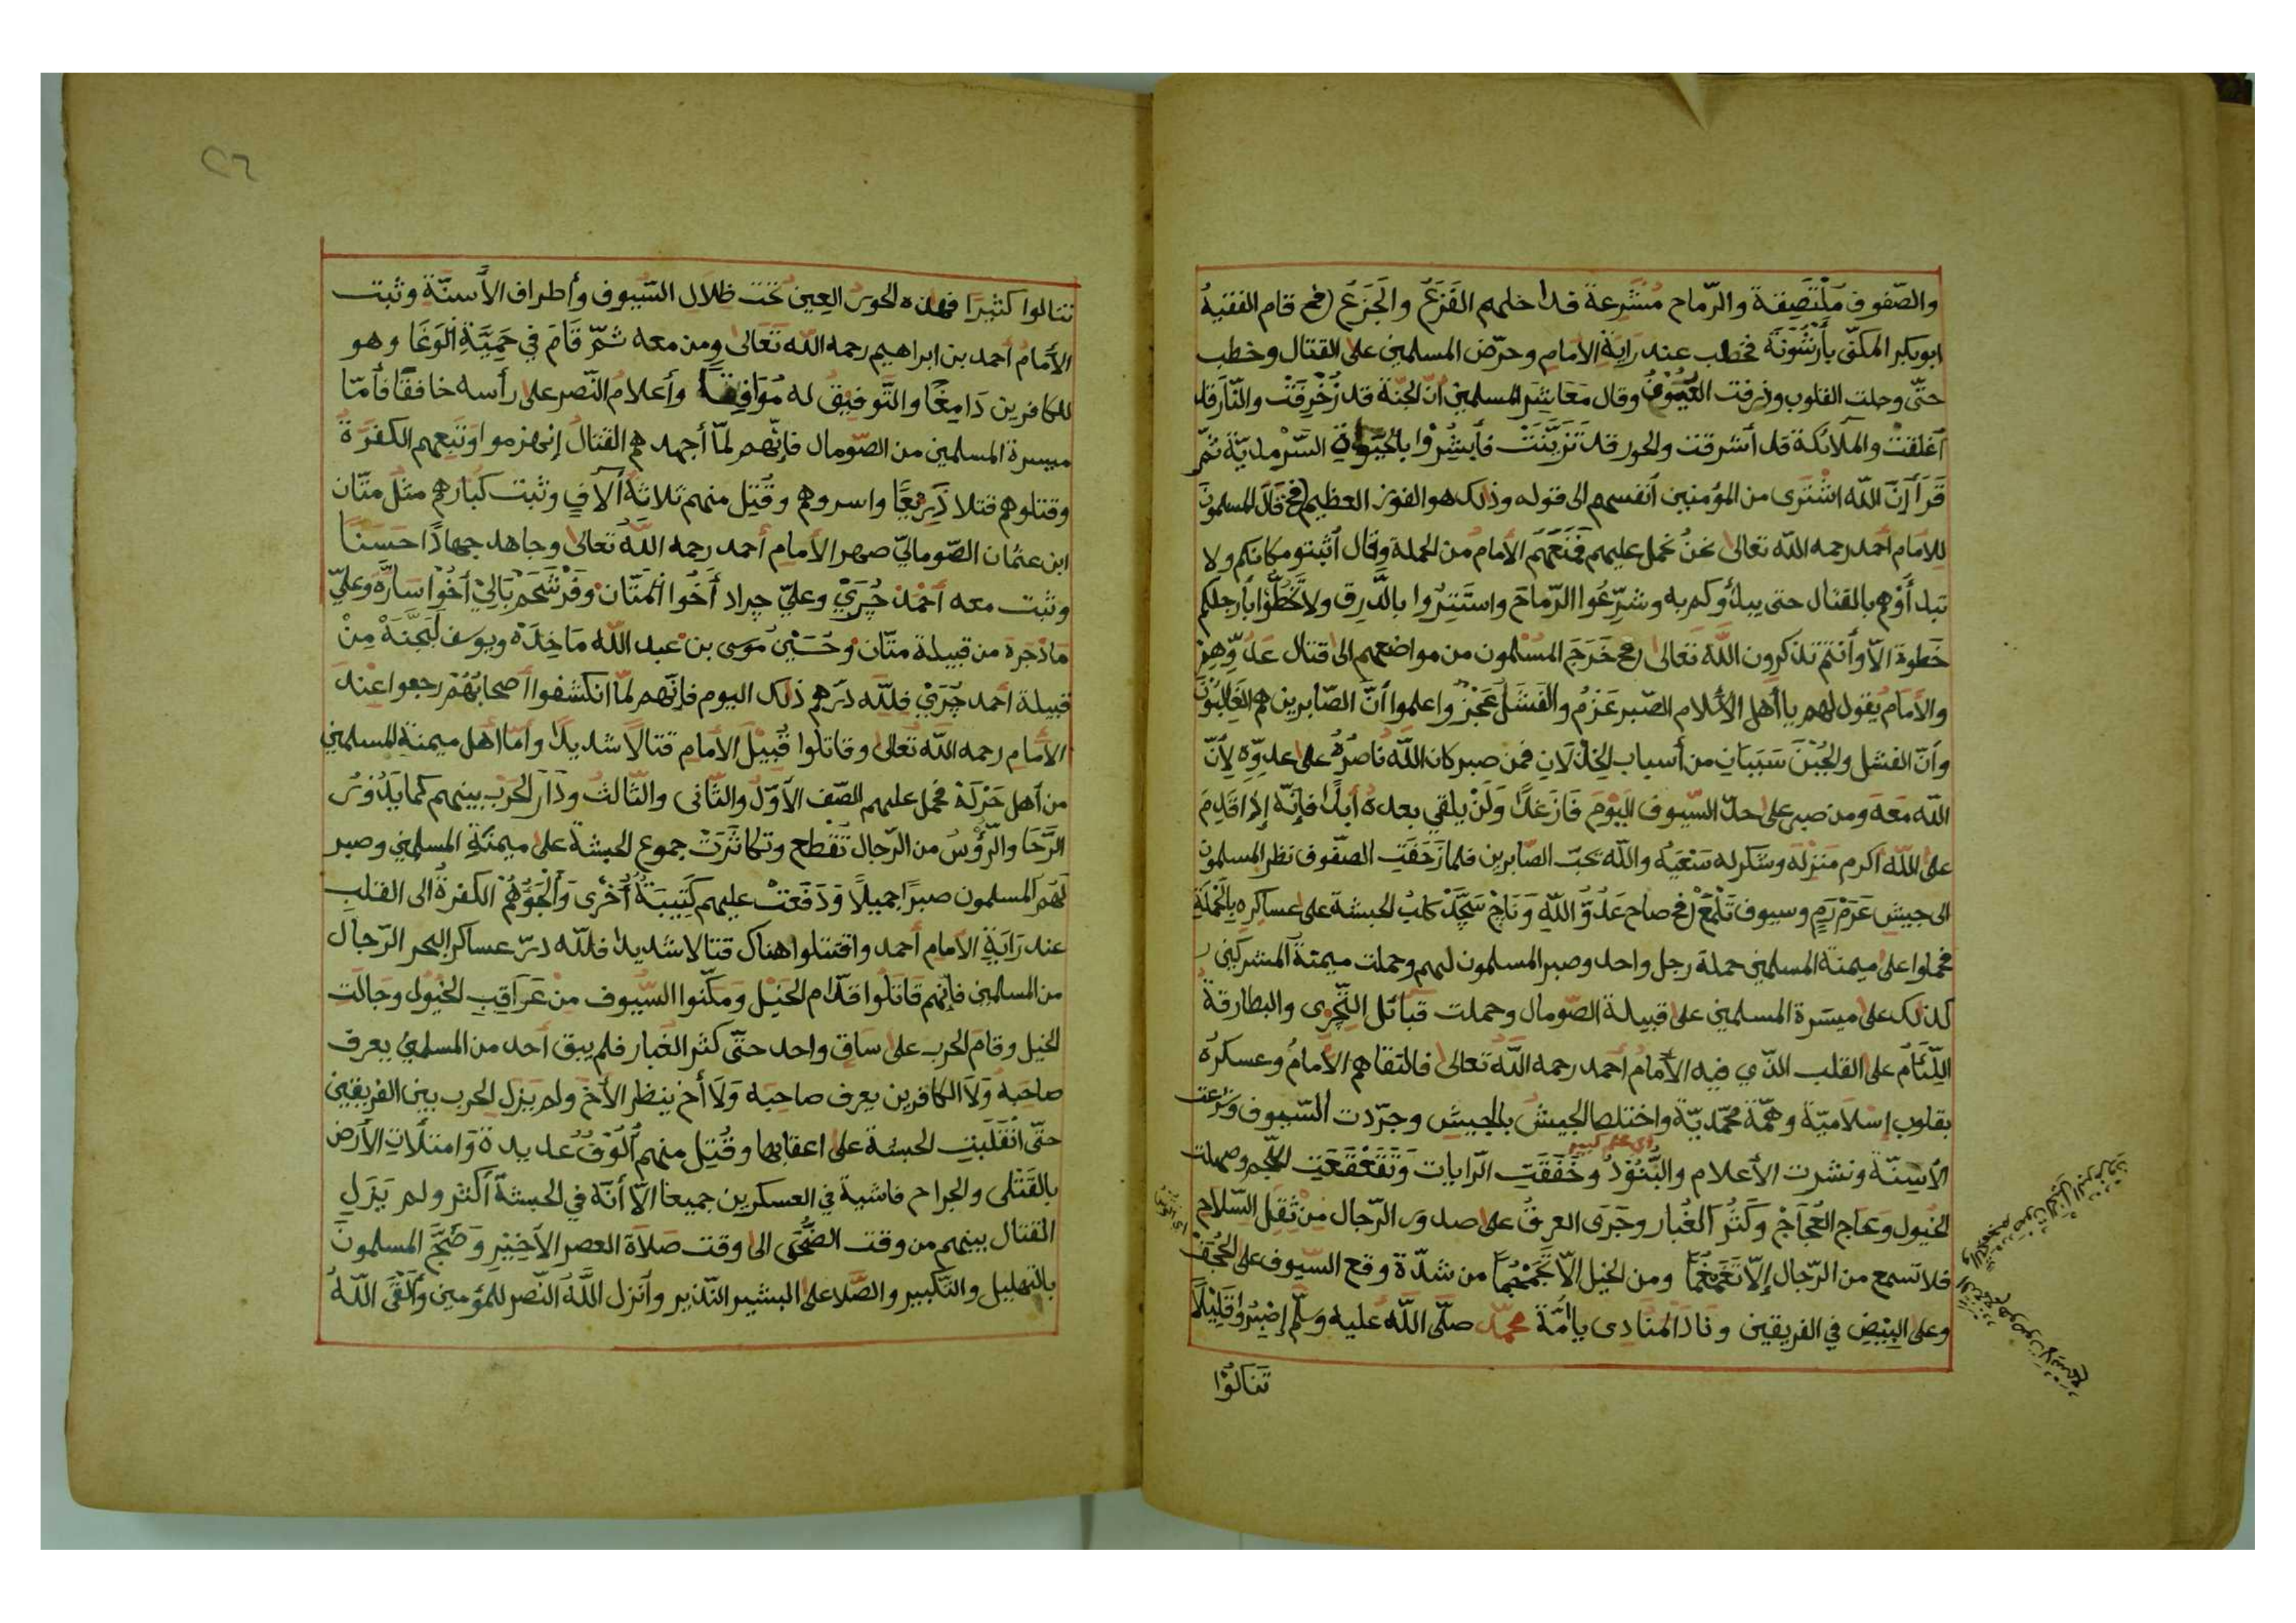 والصّفوف مُلْتَصِقة والرّماح مُشَرعة قد داخلهم الفَزَعُ والجَزَعُ فح قام الفقيهُ
ابوبكر المكنّى بأَرْشُونَة فخطب عند رايَةِ الأمامِ وحرّض المسلمين على القتال وخطب
حتّى وجلت القلوب وذرفت العُيُونُ وقال مَعَاشِرَ المسلمين انّ الجنّة قد زُخْرِفَتْ والنّار قد
أغلقت والملآئكة قد أشرقت والحور قد تَزَيَّنَتْ فأبشِرُوا بالحَيوةِ السَّرْمديّة ثمّ
قَرَأَ اِنَّ اللّه اشْتَرى من المؤمنين أنفسهم الى قوله وذلك هو الفوز العظيم فح قال المسلمونَ
للامام أحمد رحمه اللّه تعالى نحنُ نحمل عليهم فَمَنَعَهُم الأمامُ من الحملة وقال أثبتو مكانكم ولا
تبدأوهم بالقتال حتى يبدأوكم به وشرِّعُوا الرّماحَ واستَتِرُوا بالدَّرق ولا تَخُطُّوا بأرجلكم
خَطوة الاّ وأنتم تذكرون اللّه تعالى فح خَرَجَ المُسْلمون من مواضعهم الى قتال عَدُوّهِمْ
والأمَام يقول لهم يا أهل الأسلام الصّبر عَزمُ والفَشَل عَجْزُ واعلموا أنَّ الصّابرين هم الغالبُوْنَ
وأنّ الفشل والجُبْنَ سَبَبَانِ من أسباب الخذلَانِ فمن صبر كان اللّه نَاصرُهُ على عدوّه لأنّ
اللّه مَعَهُ ومن صبر على حدّ السّيوف اليَوْمَ فَازَ غَداً وَلَنْ يلقى بعده أبداً فإنّه إذا قَدِمَ
على اللّه أكرم مَنزِلَهُ وشكر له سَعْيَهُ واللّه يحبّ الصّابرين فلما زَحَفَتِ الصّفوف نظر المسلمون
الى جيش عَرَمْرَمٍ وسيوف تَلْمَعْ فح صاح عَدُوُّ اللّهِ وَنَاجْ سَجَّدْ كلبُ الحبشة على عساكره بالحَمْلَةِ
فحملوا على ميمنة المسلمين حملة رجل واحد وصبر المسلمون لهم وحملت ميمنةُ المشركين
كذلك على ميسَرة المسلمين على قبيلة الصّومال وحملت قبآئل التّجرى والبطارقةُ
اللّئآم على القلب الذّي فيه الأمامُ أحمد رحمه اللّه تعالى فالتقاهم الأمامُ وعسكرُه
بقلوب إسْلاميّة وهمّة محمّديّة واختلط الجيشُ بالجيش وجرّدت السّيوف وشرعت
الأسِنّة ونشرت الأعلام والبُنُوْدُ وخَفَقَتِ الرّايات وَتَقَعْقَعَتِ اللُّجم وصهلت
أي علم كبير
الخُيول وَعاج العُجَاجْ وَكَثُرَ الغُبار وجَرَى العرقُ على صدور الرّجال من ثِقَلِ السّلاح
فلا تسمع من الرّجال إلاّ تَغَمْغُماً ومن الخيل الاّ تَجَمْجُماً من شدّة وقع السّيوف على الحُجَفْ
وعلى البِيْضِ في الفريقين ونَادَ المُنَادى ياأمّة محمّد صلّى اللّه عليه وسلّم إصْبِرُوا قَلِيْلًا
تَنَالُوْا
٢٦
تنالوا كثيرًا فهذه الحور العِين تحت ظِلَالِ السّيوف وأطراف الأسنّة وثبت
الأمامُ أحمد بن ابراهيم رحمه اللّه تَعَالى ومن معه ثمّ قَامَ في حَمِيَّةِ الوَغَا وهو
للكافرين دَامِغًا والتَّوفيق له مُوَافِقًا وأعلامُ النّصر على رأسه خافقًا فأمّا
ميسرة المسلمين من الصّومال فإنّهم لمّا أجهدهم القتال إنهزموا وتَبِعهم الكفَرَةُ
وقتلوهم قتلا ذَرِيعًا واسروهم وقُتِل منهم ثلاثةُ آلآفٍ وثبت كبارهم مثل متّان
ابن عثمان الصّوماليّ صهر الأمامِ أحمد رحمه اللّه تعالى وجاهد جهادًا حَسَنًا
وثبت معه أحْمَدْ جُرَيْ وعليّ جراد أخُوا مَتَّانْ وفَرْشَحَمْ بَالِيْ أخُوْا سَارَّه وعليّ
مَاذجرة من قبيلة متّان وحُسَيْن مُوسى بن عبد اللّه مَاخِدَهْ ويوسف لَتجَّنَهْ مِنْ
قبيلة أحمد جُرَيْ فللّه درّهم ذلك اليوم فإنّهم لمّا انكشفوا أصحابُهُمْ رجعوا عند
الأمامِ رحمه اللّه تَعالى وقاتلوا قُبَيْلَ الأمَام قتالًا شديداً وأمّا أهل ميمنة المسلمين
من أهل حَرْلَة فحمل عليهم الصّف الأوّلُ والثّانى والثّالثُ ودَارَ الحَرْبُ بينهم كما يَدُوْرُ
الرَّحَا والرُّؤُسُ من الرّجال تُقْطَع وتكاثَرَتْ جموع الحبشة على ميمنَةِ المسلمين وصبر
لهم المسلمون صبرًا جميلًا وَدَفَعَتْ عليهم كَتِيبَةٌ أُخْرى وَأَلْجَوُّهُمْ الكفرةُ الى القلب
عند رَايَةِ الأمام أحمد واقتتلوا هناك قتالا شديدا فللّه درّ عساكر البحر الرّجال
من المسلمين فإنّهم قَاتَلُوا قدّام الخَيْل وَمكّنوا السّيوف مِنْ عَرَاقِبِ الخُيُول وجَالَت
الخيل وقامَ الحرب على سَاقٍ واحد حتّى كثر الغبار فلم يبق أحد من المسلمين يعرف
صاحبَهُ وَلَا الكافرين يعرف صاحبَه وَلَا أخ ينظر الأخَ ولم يَزلِ الحرب بين الفريقين
حتّى انْقَلَبَتِ الحبشة على اعقابها وقُتِل منهم أُلُوْفُ عديدة وَامتلأتِ الأرضُ
بالقَتْلى والجراح فاشية في العسكرين جميعا الاّ أنّه في الحبشة أكثر ولم يَزَلِ
القتال بينهم من وقت الضُّحَى الى وقت صَلَاةِ العصر الأخِيْرِ وَضَجَّ المسلمونَ
بالتهليل والتّكبير والصَّلا على البشير النّذير وأنزل اللّهُ النّصر للمؤمنين وألْقَى اللّهُ